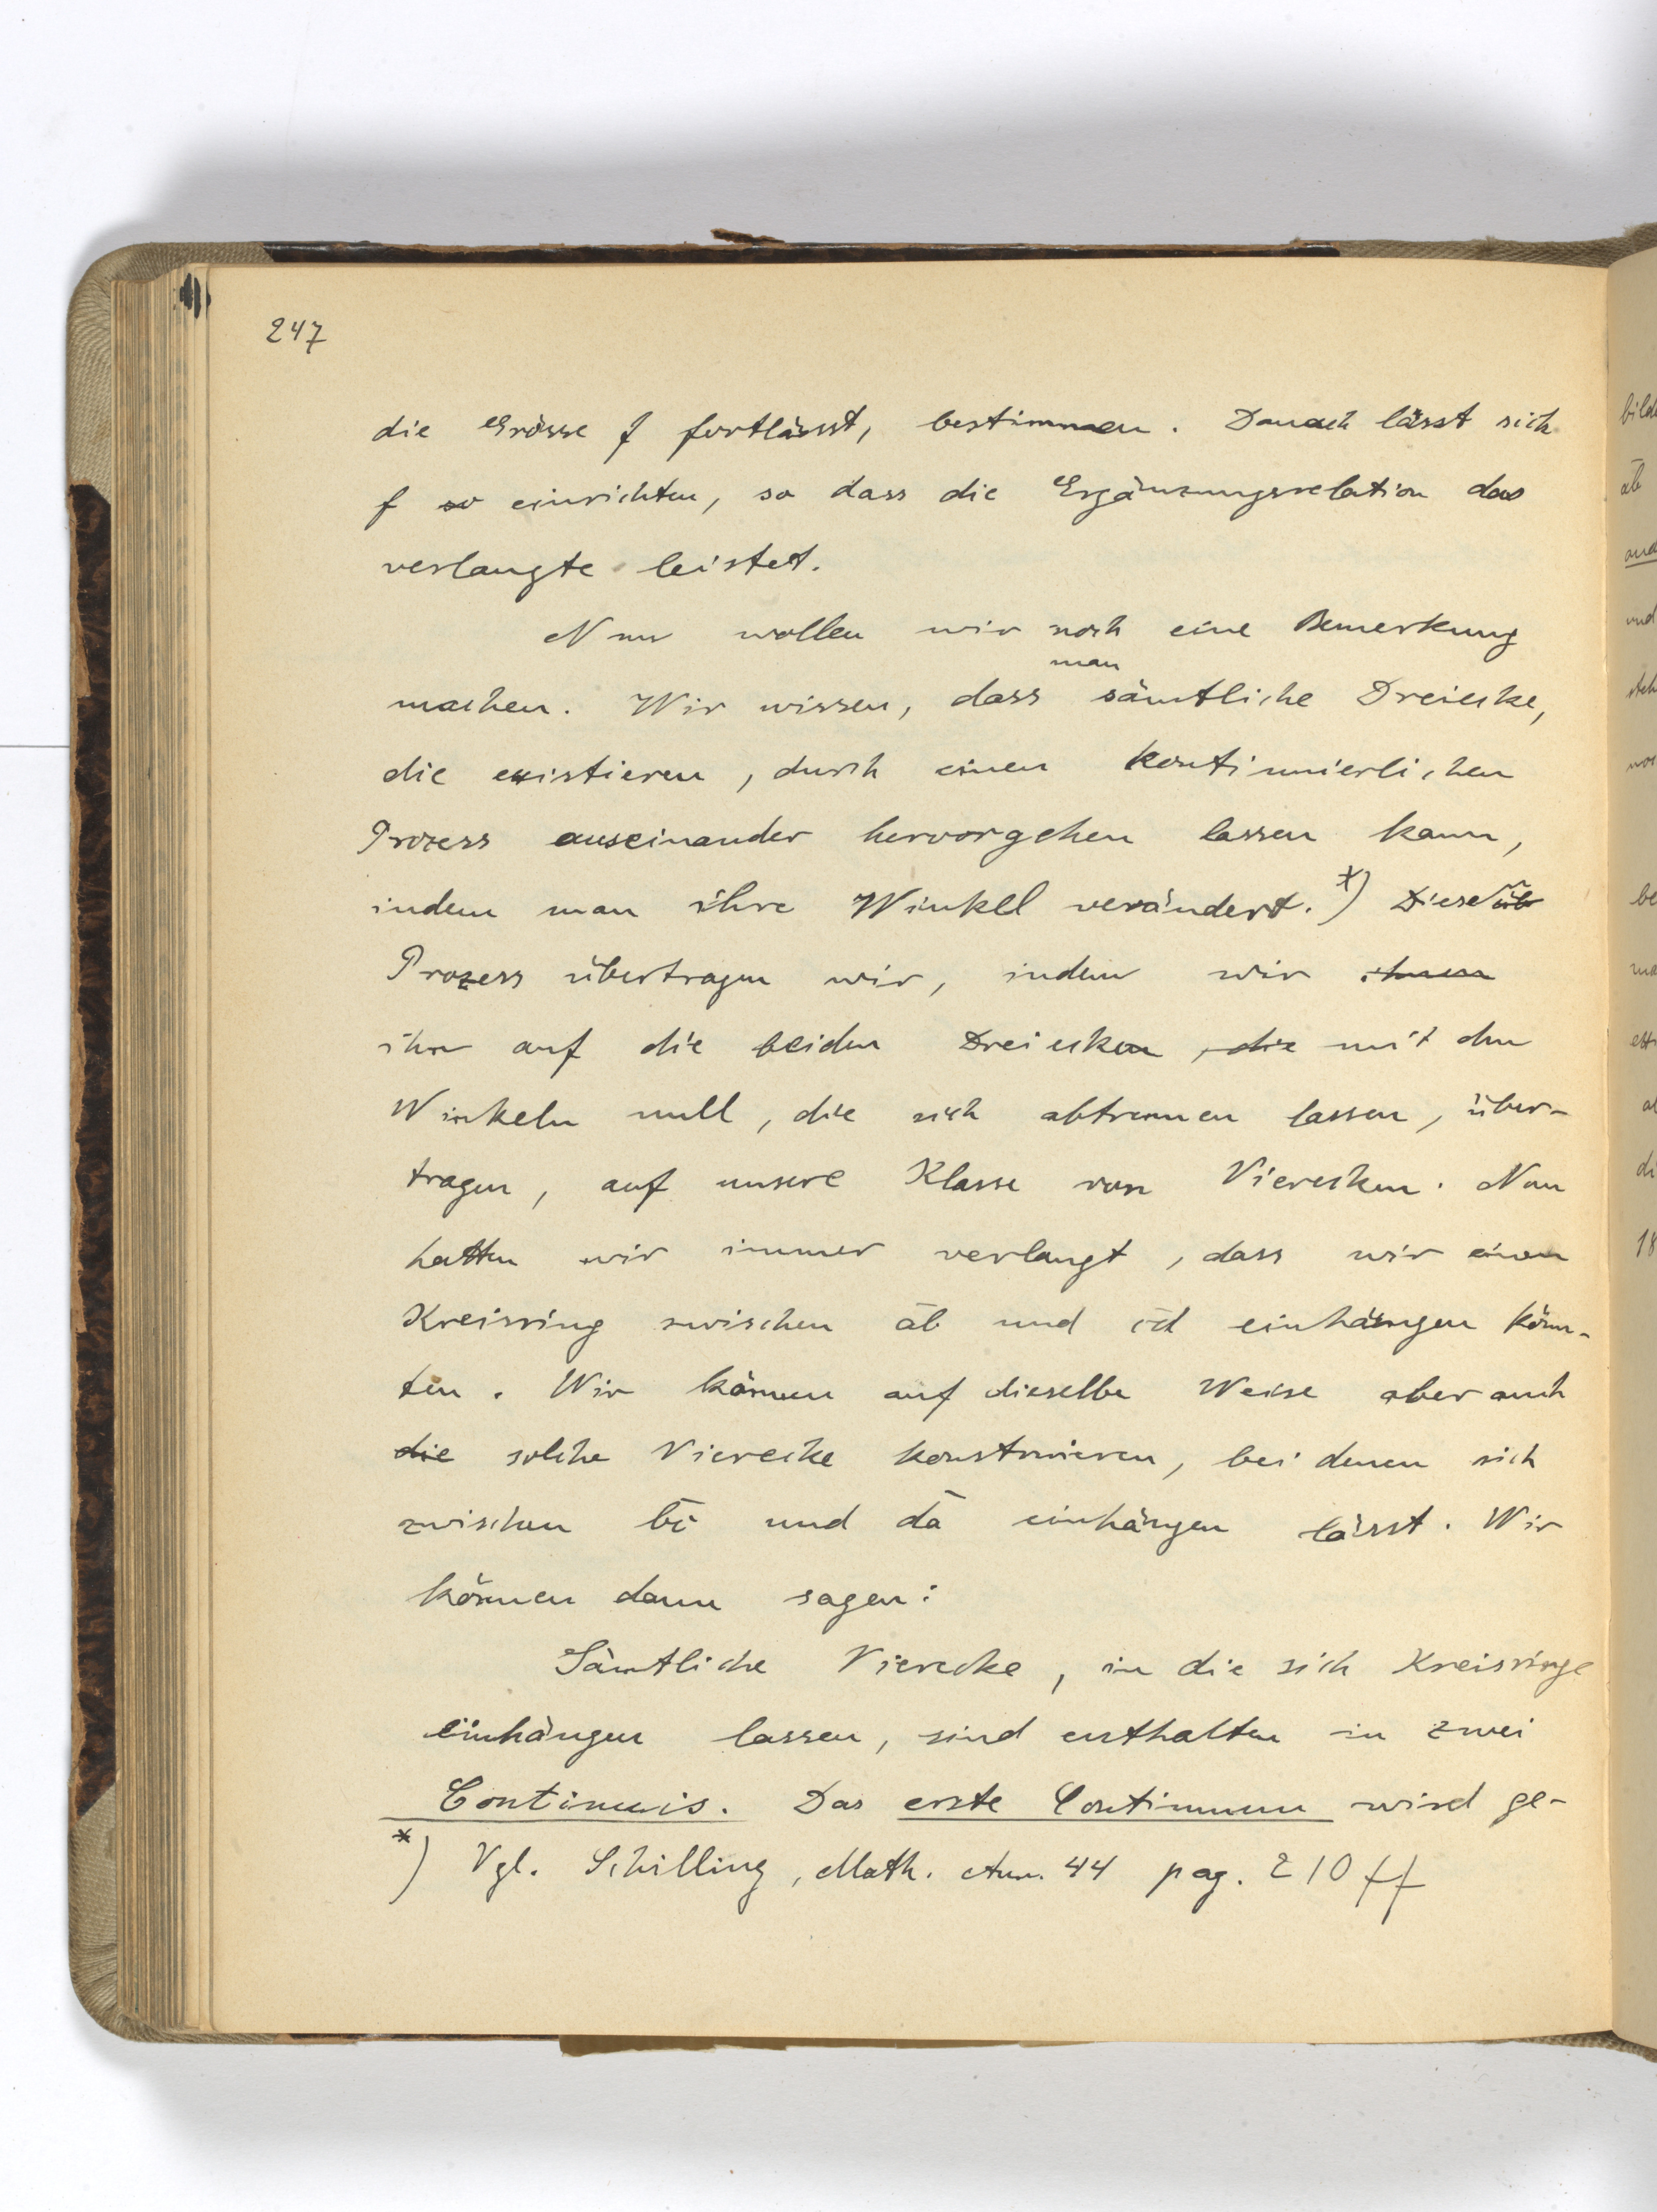 247
die Grösse f fortlässt, bestimmen. Danach lässt sich
f so einrichten, so dass die Ergänzungsrelation das
verlangte leistet.
Nun wollen wir noch eine Bemerkung
man
machen. Wir wissen, dass sämtliche Dreiecke,
die existieren, durch einen kontinuierlichen
Prozess auseinander hervorgehen lassen kann,
indem man ihre Winkel verändert. *) Diesen üb
Prozess übertragen wir, indem wir ihnen
ihn auf die beiden Dreiecken, die mit den
Winkeln null, die sich abtrennen lassen, über-
tragen, auf unsere Klasse von Vierecken. Nun
hatten wir immer verlangt, dass wir einen
Kreisring zwischen a̅b̅ und c̅d̅ einhängen könn-
ten. Wir können auf dieselbe Weise aber auch
die solche Vierecke konstruieren, bei denen sich
zwischen b̅c̅ und d̅a̅ einhängen lässt. Wir
können dann sagen:
Sämtliche Vierecke, in die sich Kreisringe
einhängen lassen, sind enthalten in zwei
Continuis. Das erste Continuum wird ge-
*) Vgl. Schilling, Math. Ann. 44 pag. 210 ff